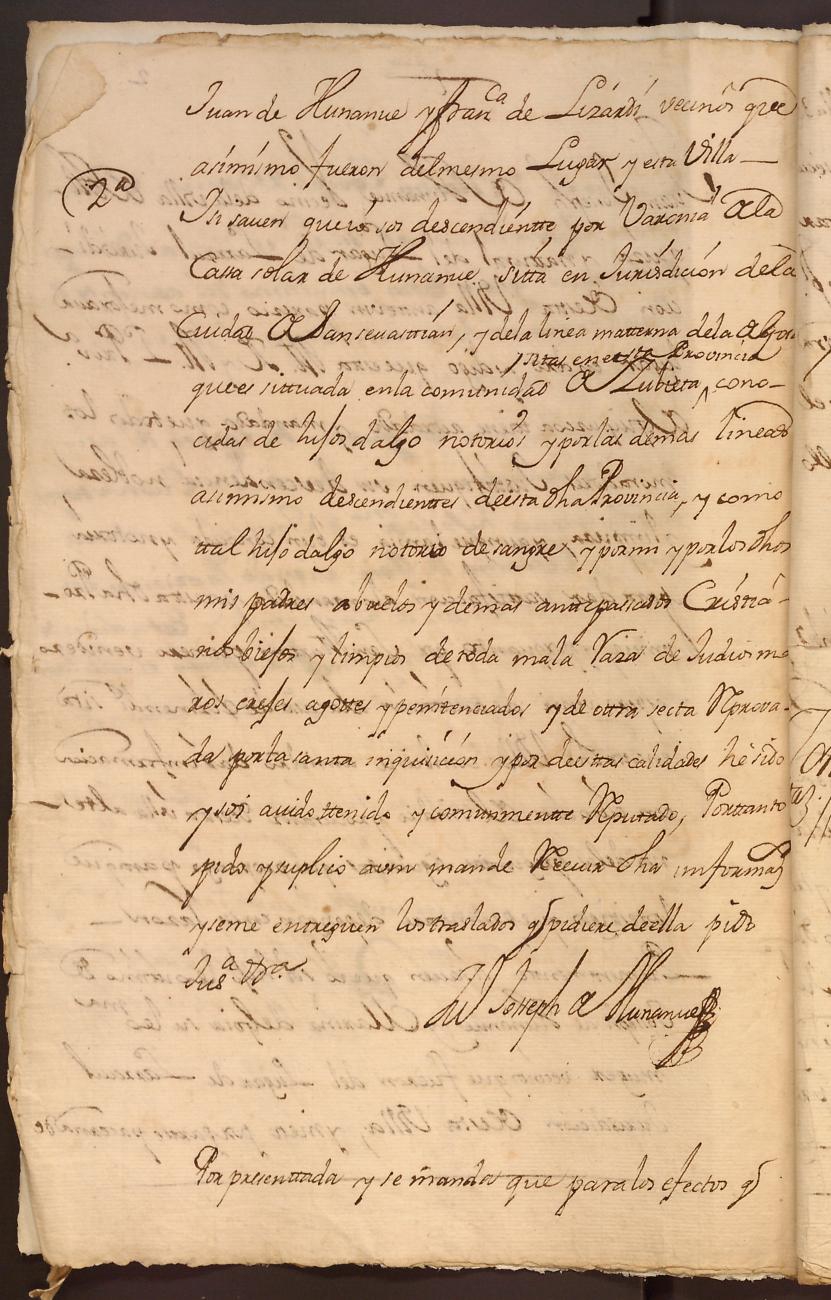 Juan de Hunanue y fran.ca de Lizardi vecinos que
asimismo fueron del mesmo Lugar y esta Villa —
2a
Ysi saven que io soi descendientte por Varonia de la
Cassa solar de Hunanue sitta en Jurisdición de la
Ciudad de San sevasttian, y de la linea matterna de la de
sitas en esta Provincia
que es sittuada en la comunidad de Zubieta, cono-
cidas de hijos dalgo notorios y por las demas lineas
asimismo descendienttes de esta dha Provincia, y como
ttal hijo dalgo notorio de sangre y por mi y por los dhos
mis padres abuelos y demas anttepasados Cristia-
nos biejos y limpios de toda mala Raza de Judios mo
ros erejes agottes y penitenciados y de ottra secta Reprova-
da por la santa inquisición y por de esttas calidades he sido
y soi avido ttenido y comunmentte Reputado, Porttanto
pido y suplico a vm mande Recivir dha informaon
y se me entreguen los traslados q pidiere de ella pido
Jusa &ra
Joseph de Hunanue
Por presenttada y se manda que para los efectos q